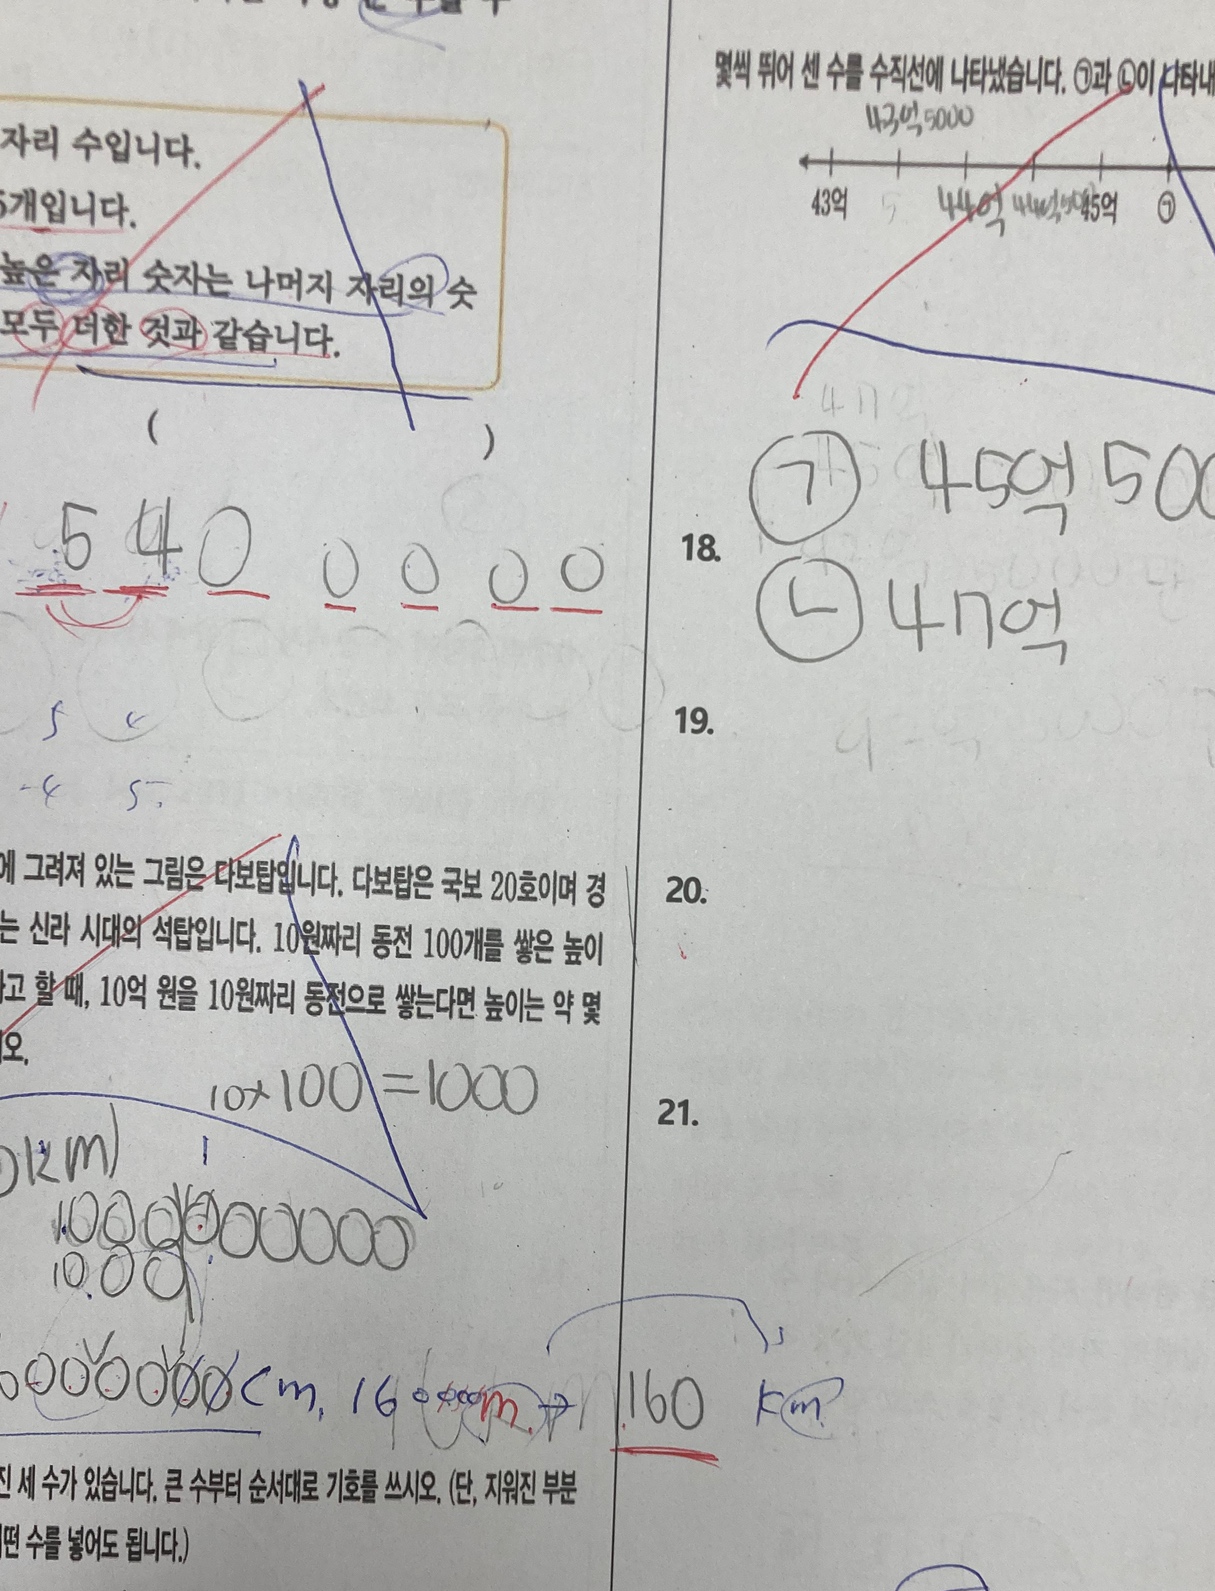 자리 수입니다.
5개입니다.
높은 자리 숫자는 나머지 자리의 숫
모두 더한 것과 같습니다.
( )
5 4 0 0 0 0 0
5 4
-4 5
에 그려져 있는 그림은 다보탑입니다. 다보탑은 국보 20호이며 경
는 신라 시대의 석탑입니다. 10원짜리 동전 100개를 쌓은 높이
라고 할 때, 10억 원을 10원짜리 동전으로 쌓는다면 높이는 약 몇
오.
10×100=1000
km)
1000000000
1000
cm, 160000m → 160 km
진 세 수가 있습니다. 큰 수부터 순서대로 기호를 쓰시오. (단, 지워진 부분
떤 수를 넣어도 됩니다.)
몇씩 뛰어 센 수를 수직선에 나타냈습니다. ㉠과 ㉡이 나타내
43억5000
43억 5 44억 45억 ㉠
㉠ 45억 500
18.
㉡ 47억
19.
20.
21.